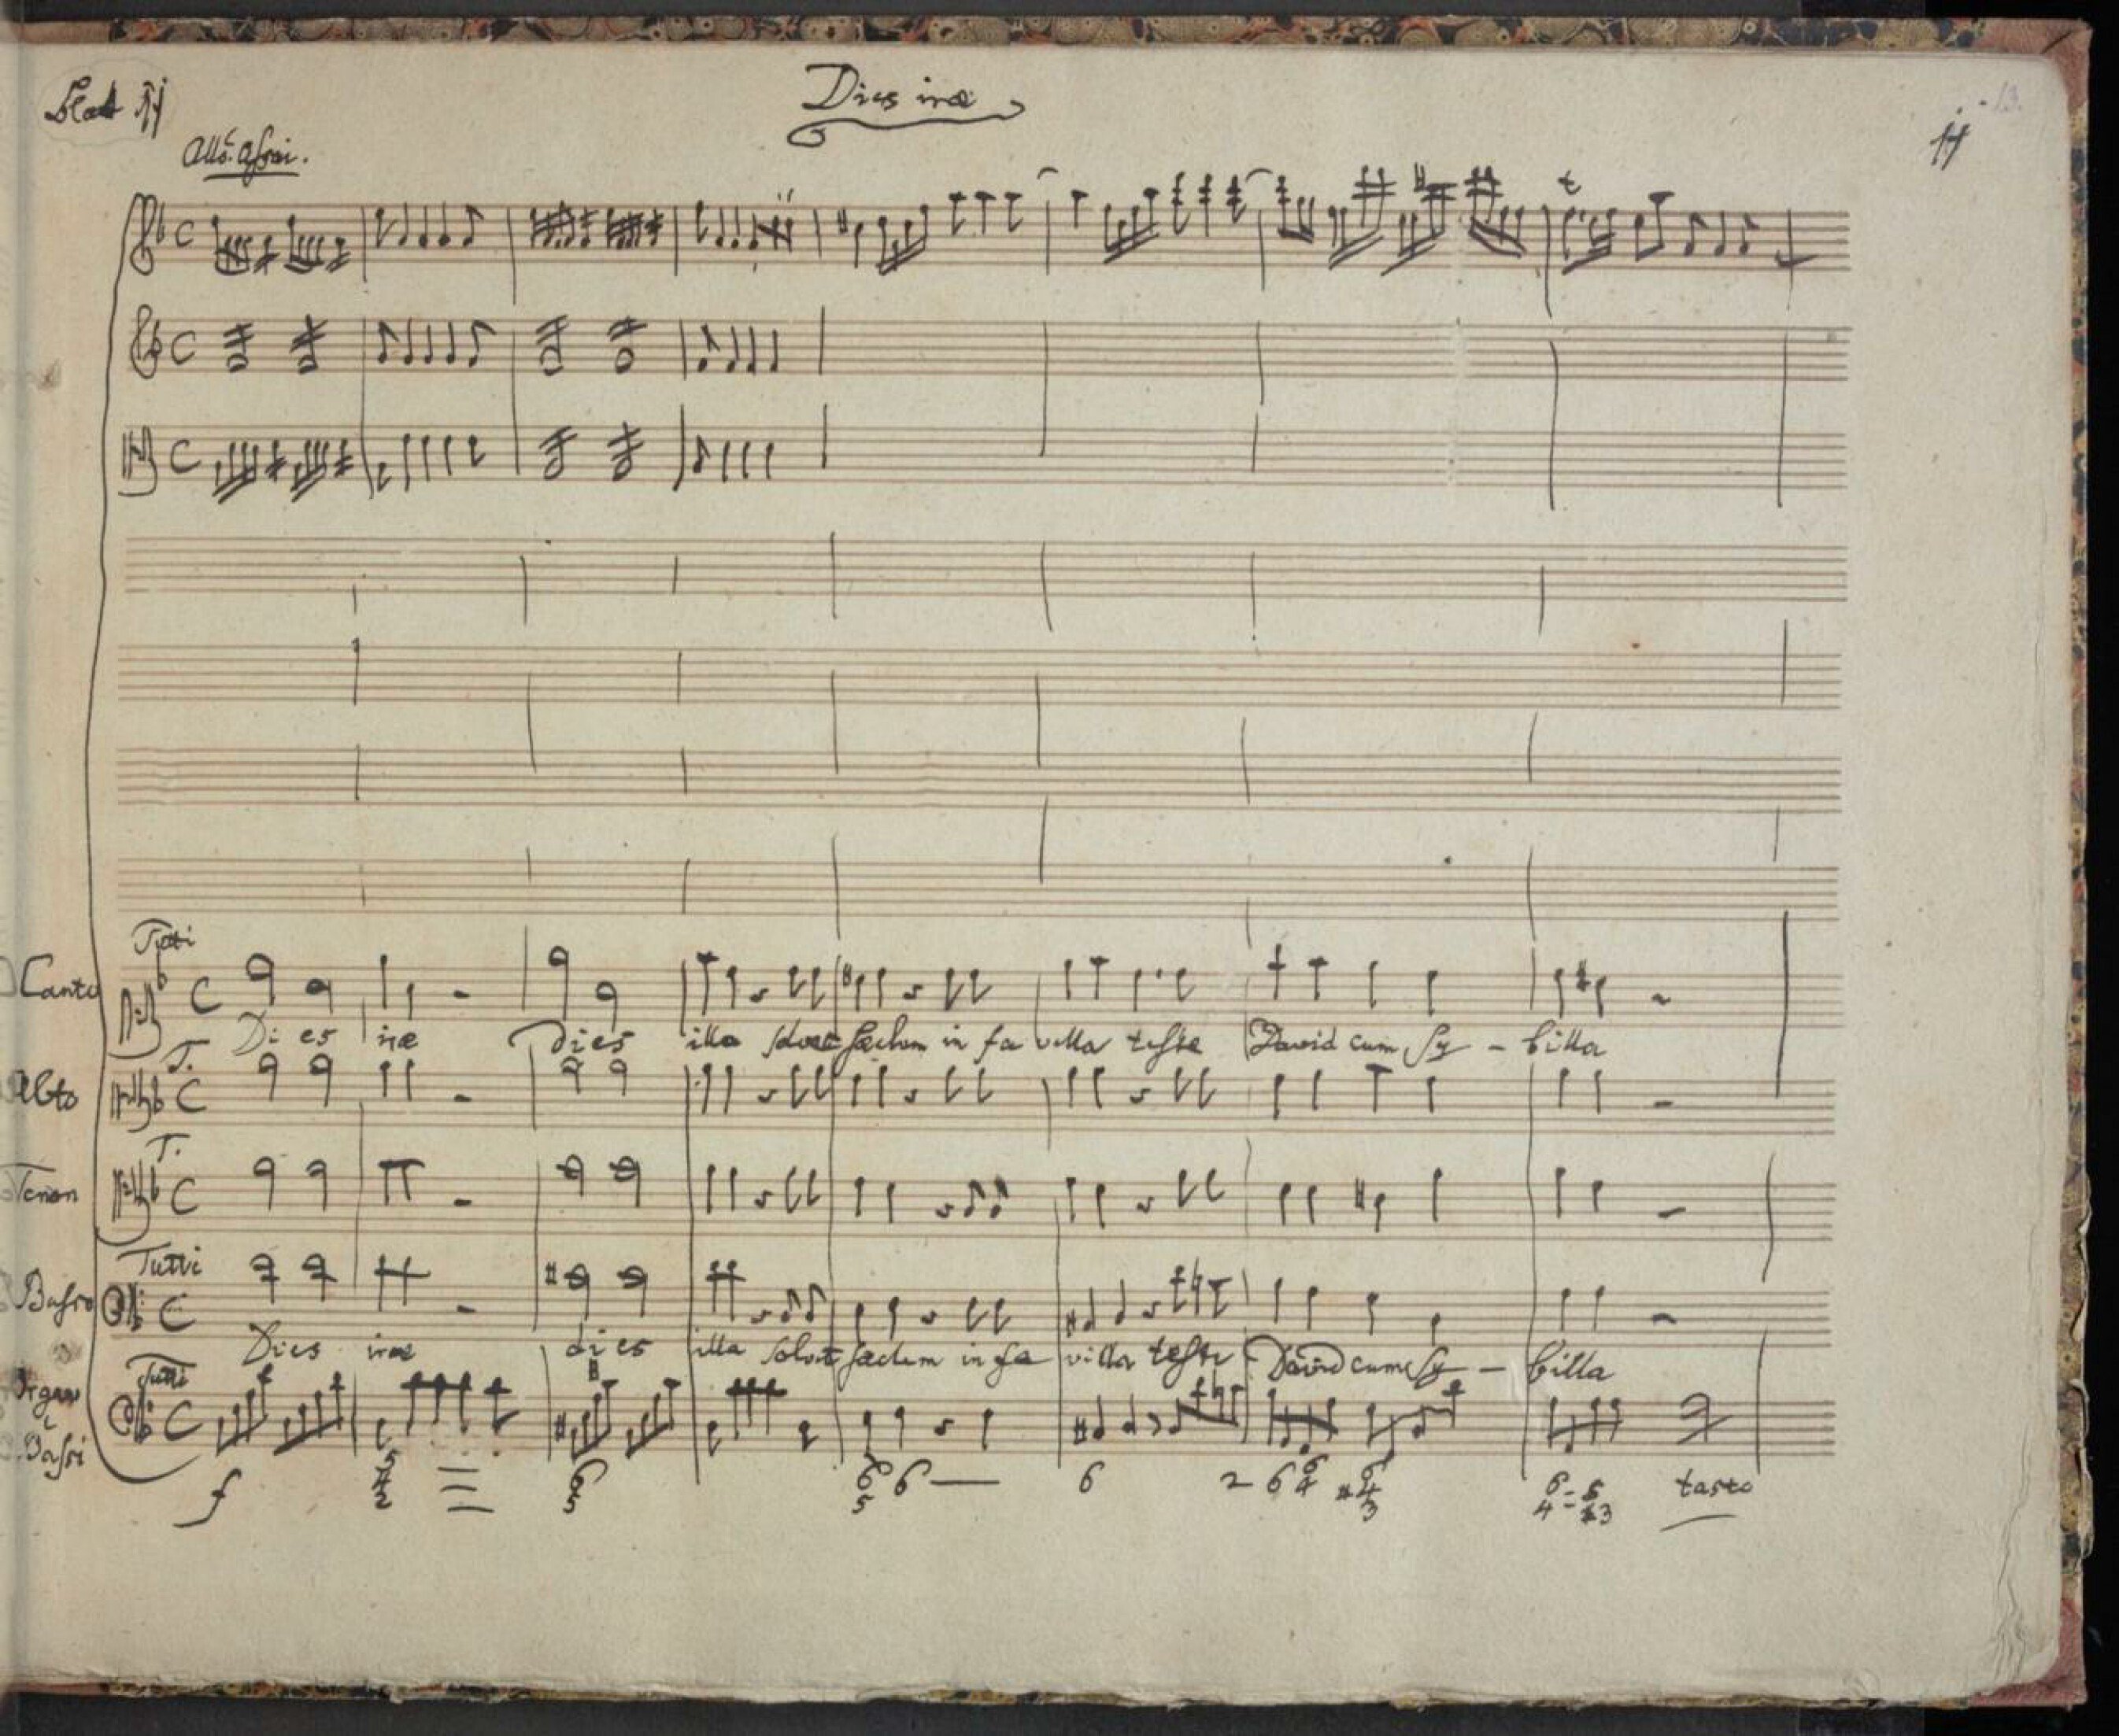 Dies iræ
11
Allo. assai.
C
C
C
Tutti
Canto C
Di es iræ Dies illa solvet sæclum in fa villa teste David cum Sy - billa
T.
Alto C
T.
Tenor C
Tutti
Basso C
Dies iræ dies illa solvet sæclum in fa villa teste David cum Sy - billa
Tutti
Organo
e
Bassi C
f 5 4 2 6 5 6 5 6 — 6 2 6 6 4 6 4 3 6 4 - 5 3 tasto